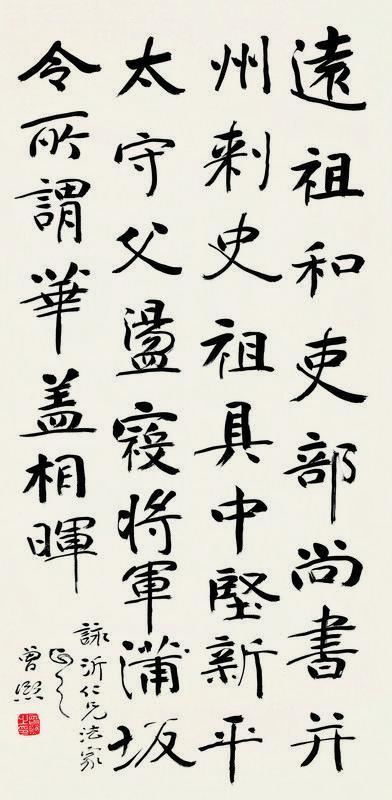 遠祖和吏部尚書并
州刺史祖具中堅新平
太守父盪寇将軍蒲坂
令所謂華盖相暉
詠沂仁兄法家
正之
曾熙